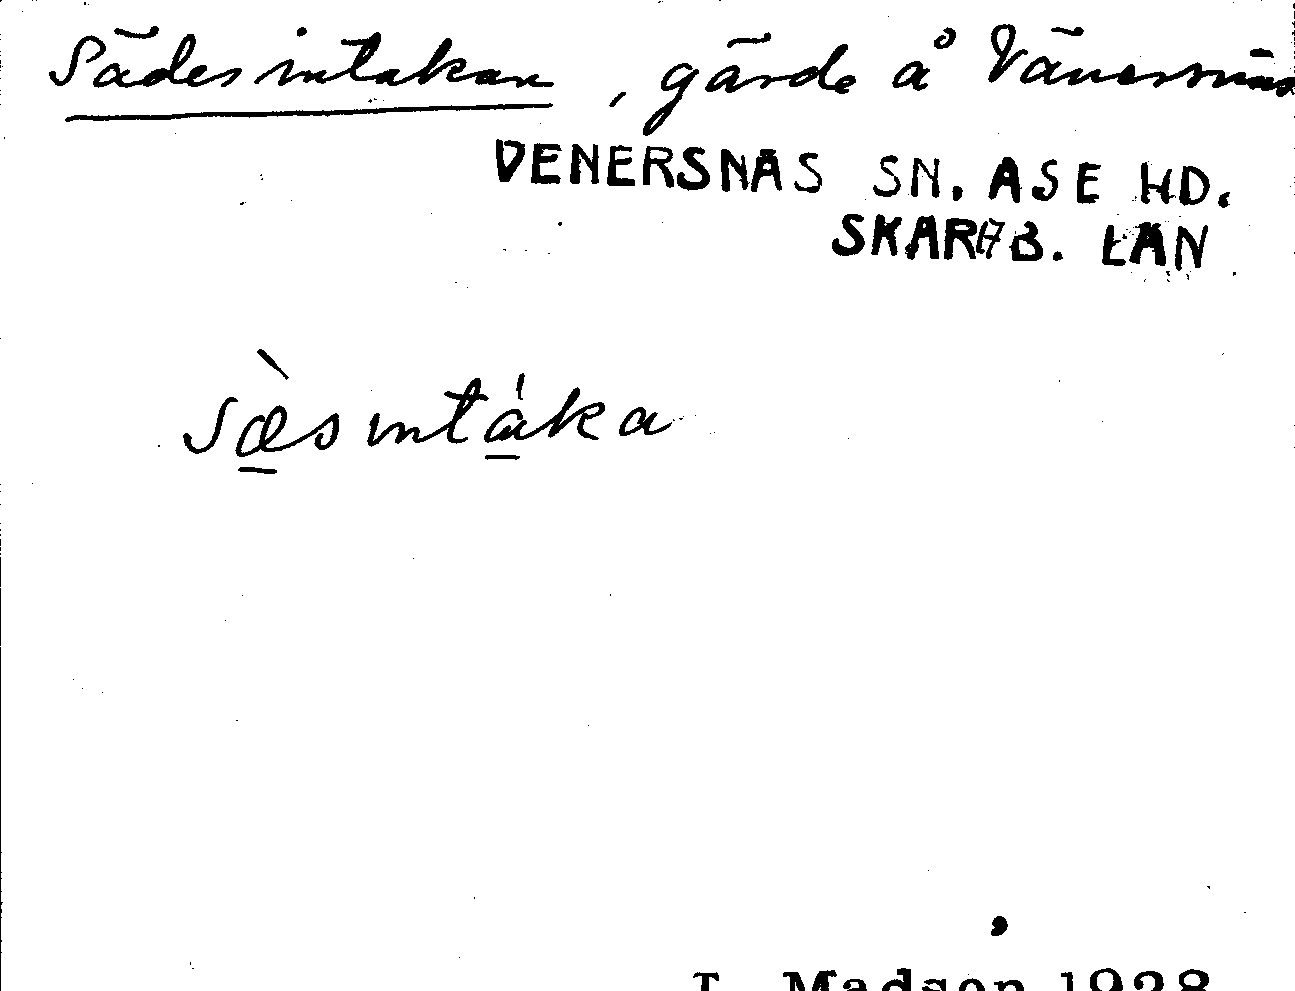 Sädesintakan, gärde å Vänersnäs
VENERSNAS SN. ASE HD.
SKARAB. LAN
sæ̠̀sinta̠̍ka
I. Madsen 1928